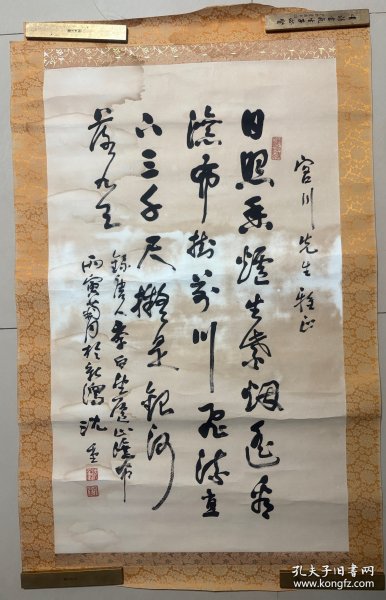 宮川先生雅正
日照香爐生紫烟遙看
瀑布掛前川飛流直
下三千尺擬是銀河
落九天
錄唐人李白望廬山瀑布
丙寅 月於 沈
孔夫子旧书网